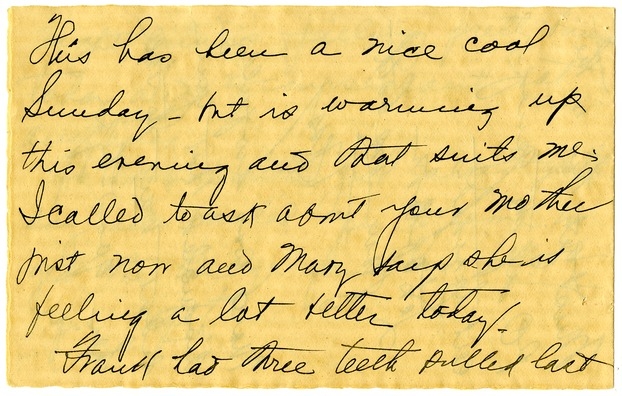 This has been a nice cool
Sunday - but is warming up
this evening and that suits me.
I called to ask about your mother
just now and Mary says she is
feeling a lot better today.
Frank had three teeth pulled last